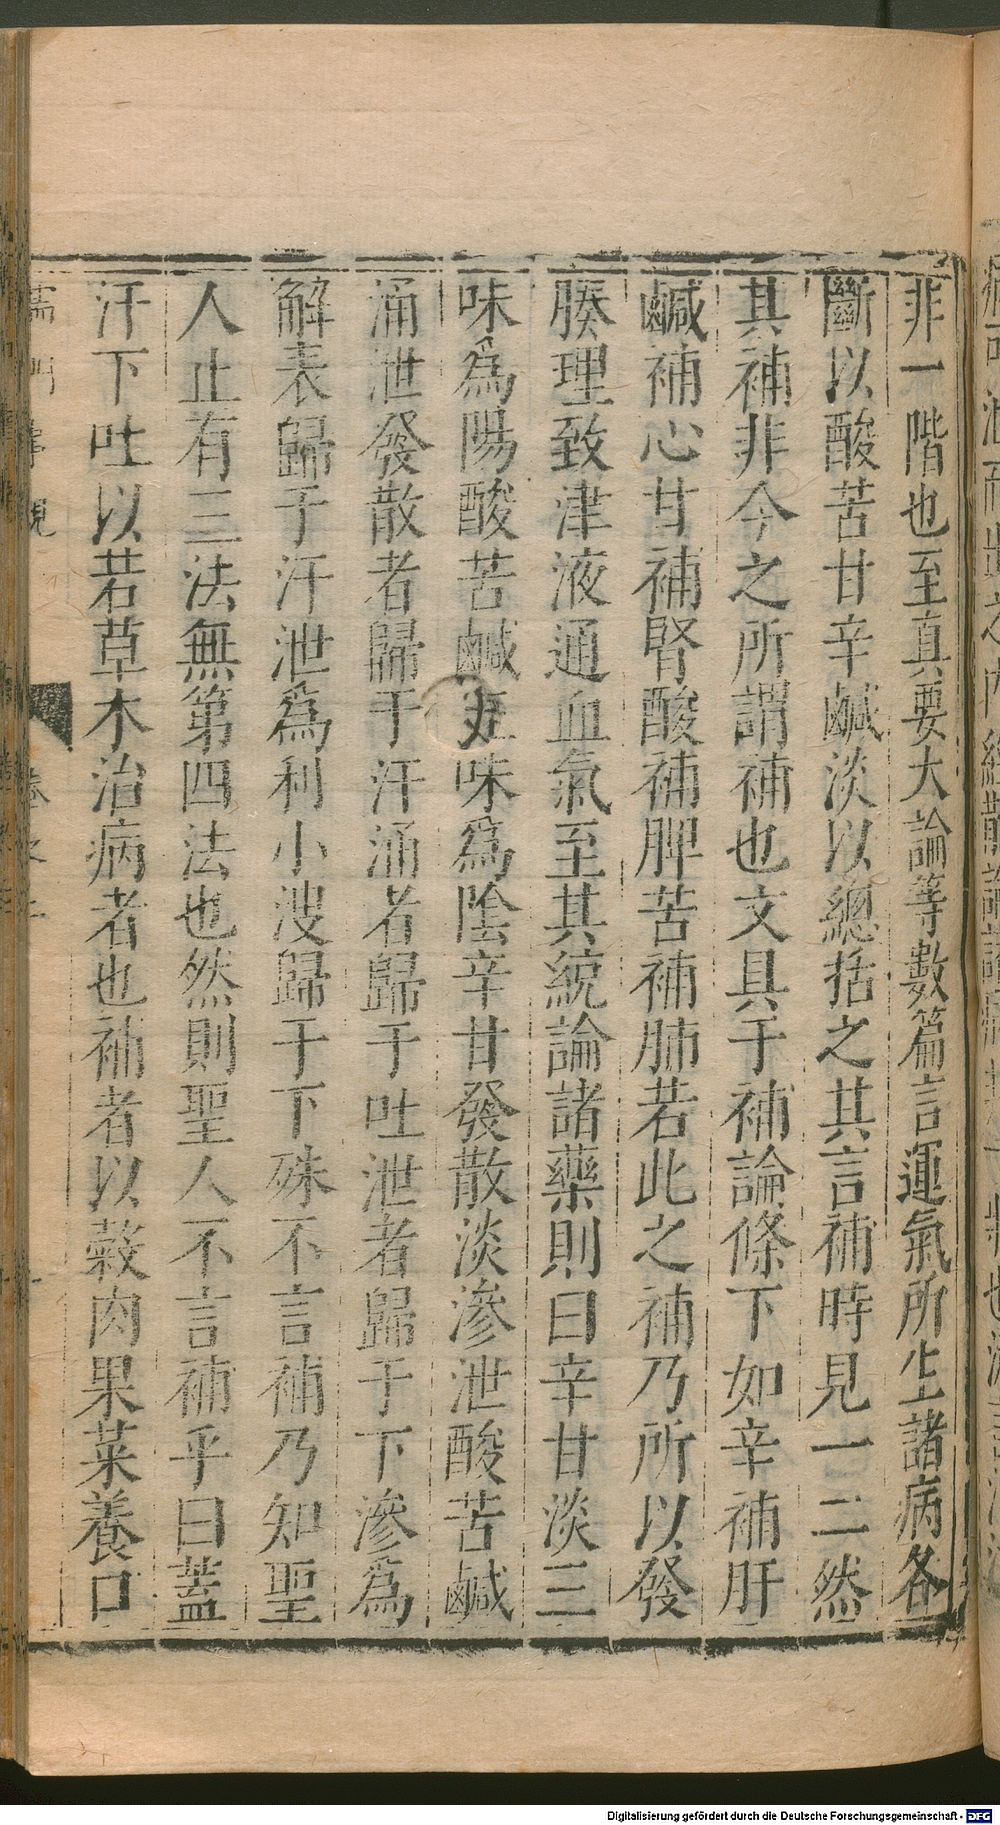 非一階也至真要大論等數篇言運氣所生諸病各
斷以酸苦甘辛鹹淡以總括之其言補時見一二然
其補非今之所謂補也文具于補論條下如辛補肝
鹹補心甘補腎酸補脾苦補肺若此之補乃所以發
腠理致津液通血氣至其統論諸藥則曰辛甘淡三
味爲陽酸苦鹹三味爲陰辛甘發散淡滲泄酸苦鹹
涌泄發散者歸于汗涌者歸于吐泄者歸于下滲爲
解表歸于汗泄爲利小溲歸于下殊不言補乃知聖
人止有三法無第四法也然則聖人不言補乎曰蓋
汗下吐以若草木治病者也補者以穀肉果菜養口
儒門事親
Digitalisierung gefördert durch die Deutsche Forschungsgemeinschaft - DFG